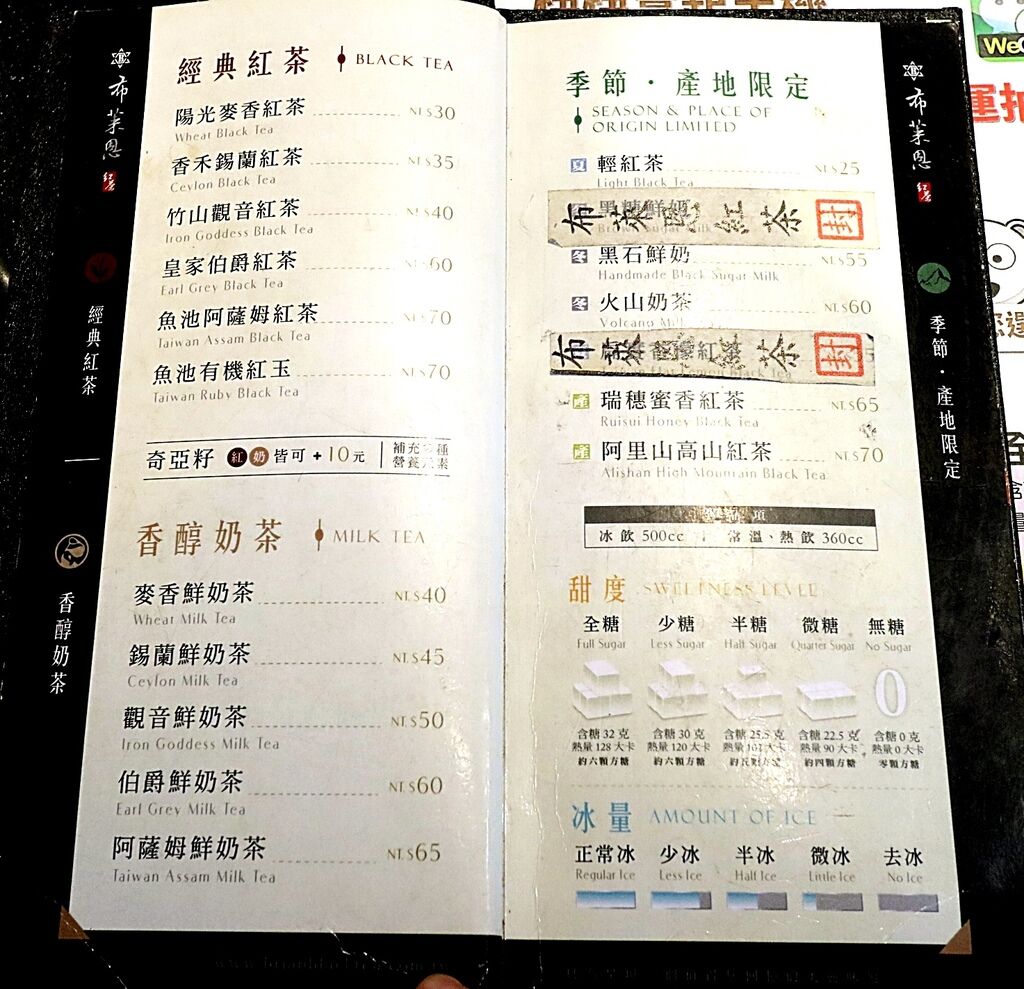 布萊恩
紅茶
經典紅茶
香醇奶茶
經典紅茶 BLACK TEA
陽光麥香紅茶 NT.$30
Wheat Black Tea
香禾錫蘭紅茶 NT.$35
Ceylon Black Tea
竹山觀音紅茶 NT.$40
Iron Goddess Black Tea
皇家伯爵紅茶 NT.$60
Earl Grey Black Tea
魚池阿薩姆紅茶 NT.$70
Taiwan Assam Black Tea
魚池有機紅玉 NT.$70
Taiwan Ruby Black Tea
奇亞籽 紅 奶 皆可+10元 補充多種
營養元素
香醇奶茶 MILK TEA
麥香鮮奶茶 NT.$40
Wheat Milk Tea
錫蘭鮮奶茶 NT.$45
Ceylon Milk Tea
觀音鮮奶茶 NT.$50
Iron Goddess Milk Tea
伯爵鮮奶茶 NT.$60
Earl Grey Milk Tea
阿薩姆鮮奶茶 NT.$65
Taiwan Assam Milk Tea
季節・產地限定
SEASON & PLACE OF
ORIGIN LIMITED
夏 輕紅茶 NT.$25
Light Black Tea
黑糖鮮奶
布萊恩紅茶 封
冬 黑石鮮奶 NT.$55
Handmade Black Sugar Milk
冬 火山奶茶 NT.$60
Volcano Milk
布萊恩紅茶 封
產 瑞穗蜜香紅茶 NT.$65
Ruisui Honey Black Tea
產 阿里山高山紅茶 NT.$70
Alishan High Mountain Black Tea
項
冰飲 500cc | 常溫、熱飲 360cc
甜度 SWEETNESS LEVEL
全糖 少糖 半糖 微糖 無糖
Full Sugar Less Sugar Half Sugar Quarter Sugar No Sugar
0
含糖 32 克 含糖 30 克 含糖 25.5 克 含糖 22.5 克 含糖 0 克
熱量 128 大卡 熱量 120 大卡 熱量 102 大卡 熱量 90 大卡 熱量 0 大卡
約六顆方糖 約六顆方糖 約五顆方糖 約四顆方糖 零顆方糖
冰量 AMOUNT OF ICE
正常冰 少冰 半冰 微冰 去冰
Regular Ice Less Ice Half Ice Little Ice No Ice
布萊恩
紅茶
季節・產地限定
WeC
運抽